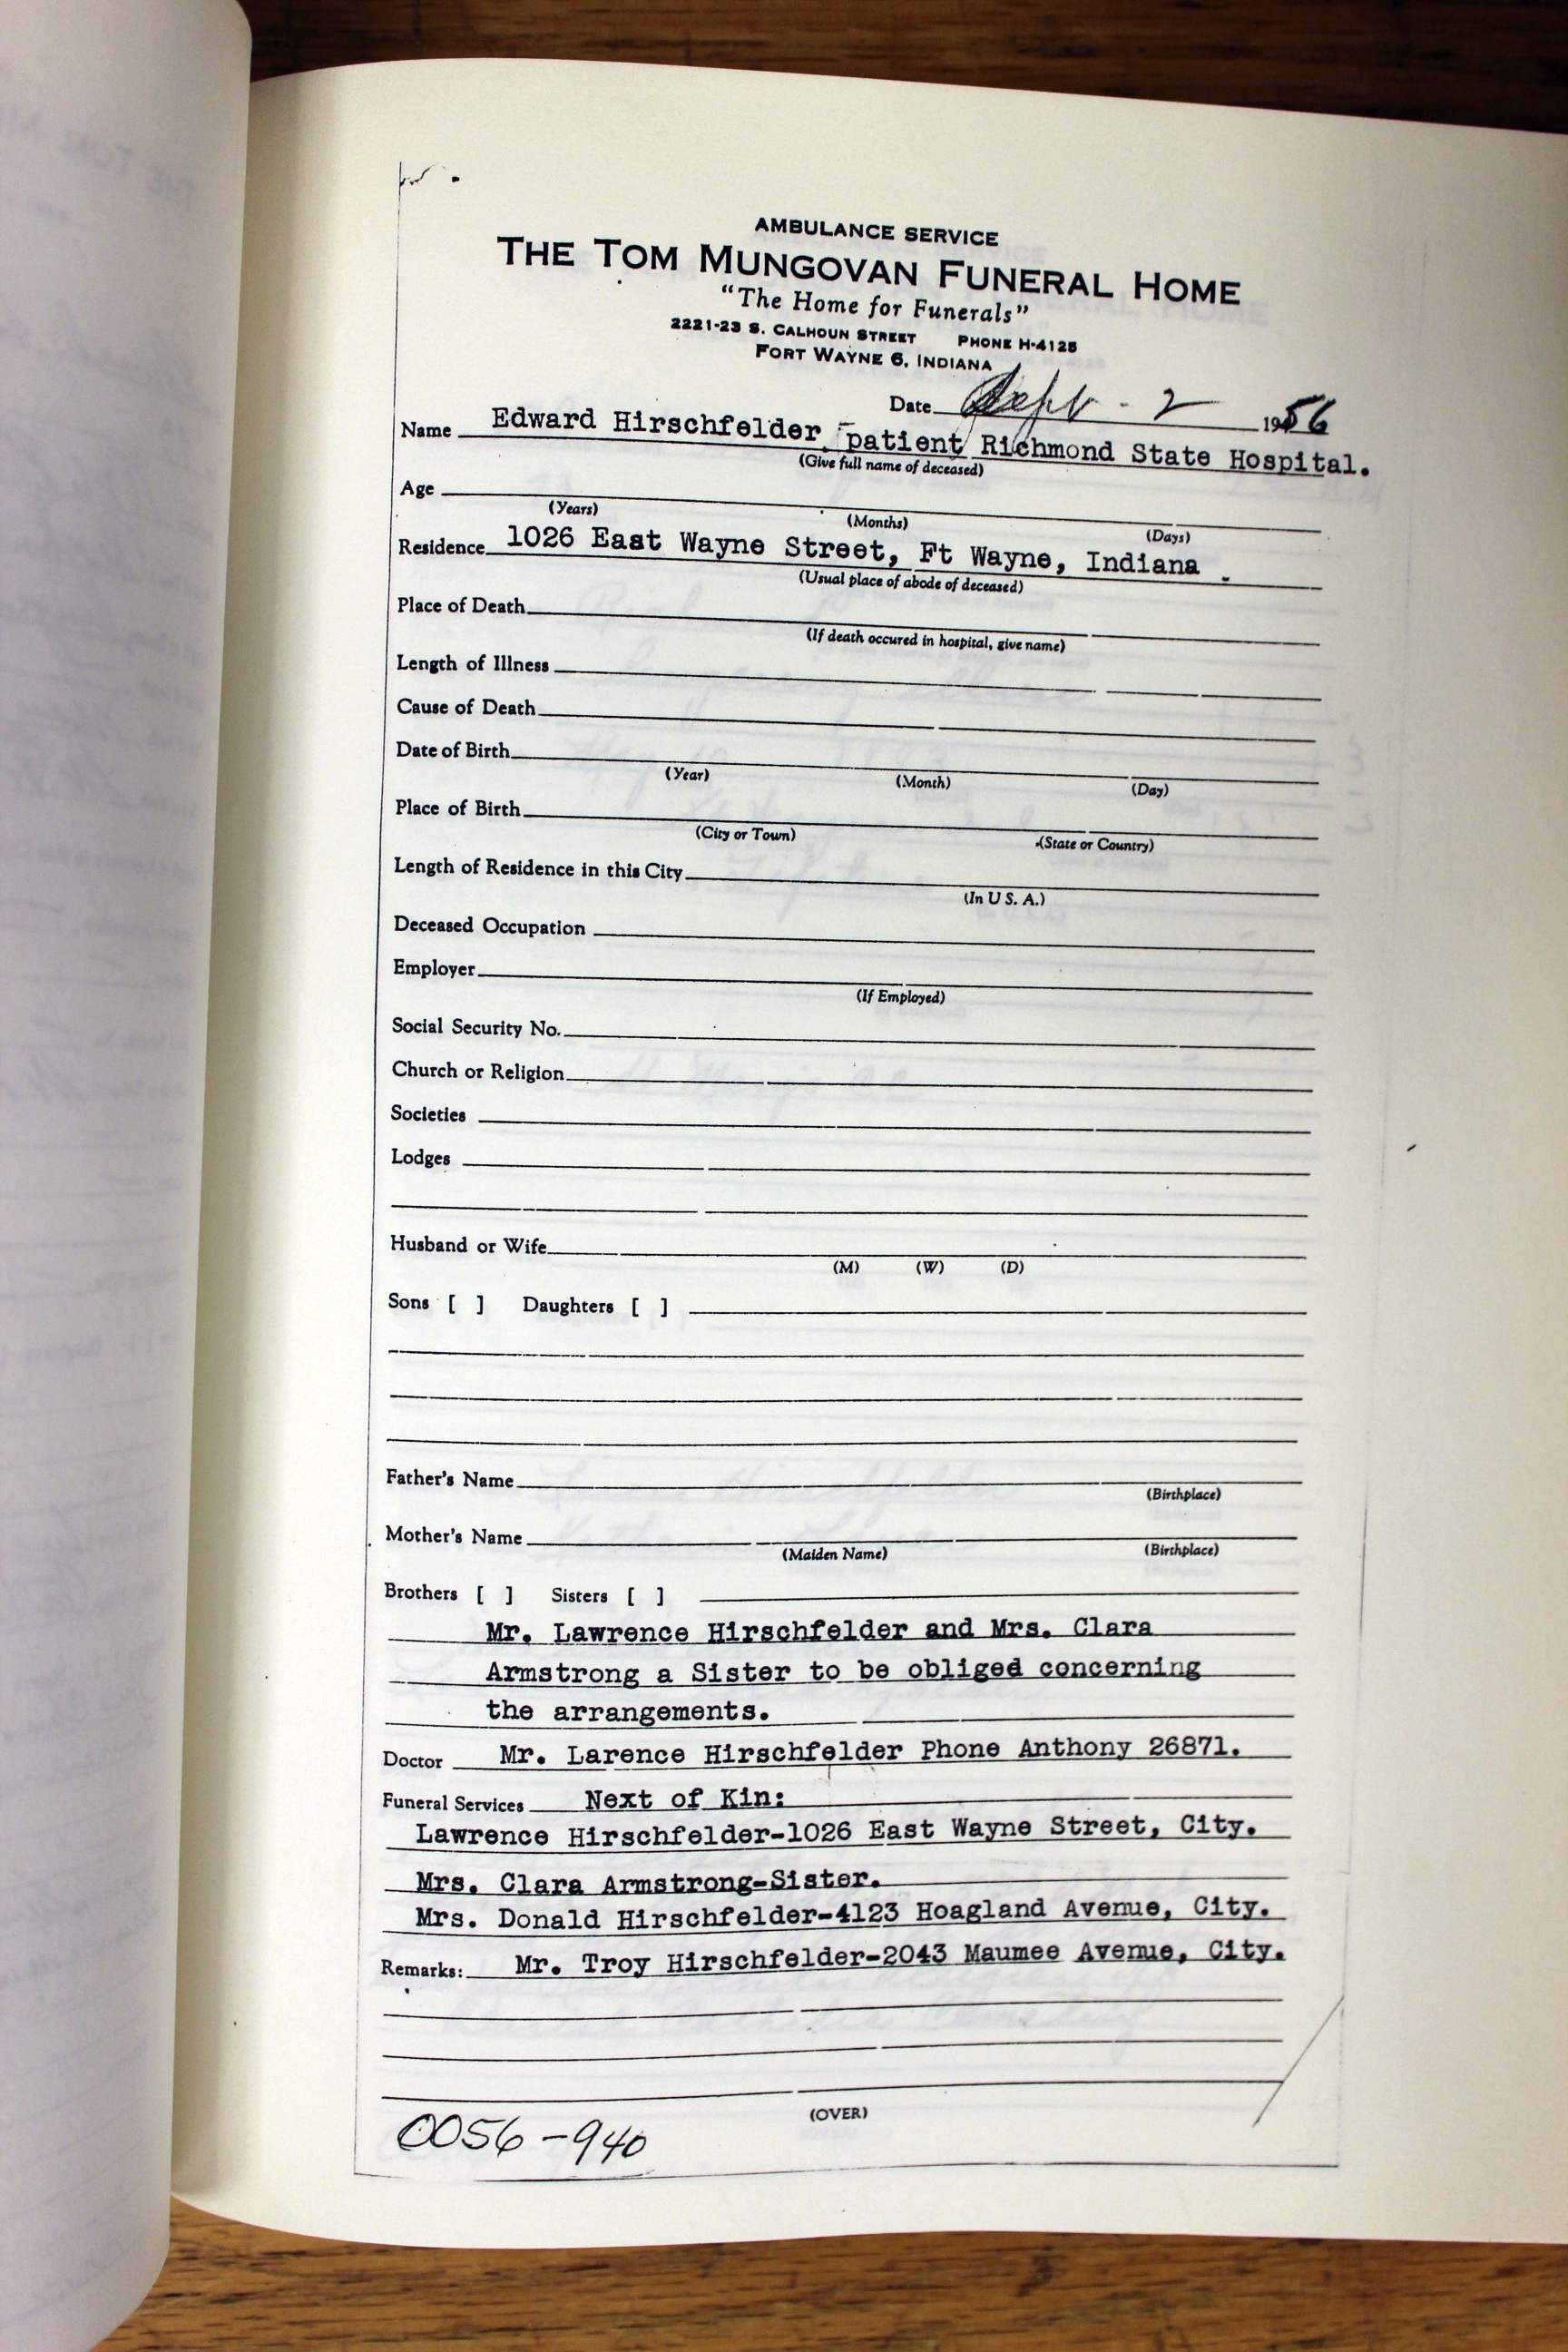 AMBULANCE SERVICE
THE TOM MUNGOVAN FUNERAL HOME
"The Home for Funerals"
2221-23 S. CALHOUN STREET PHONE H-4125
FORT WAYNE 6, INDIANA
Date Sept - 2 1956
Name Edward Hirschfelder, patient Richmond State Hospital.
(Give full name of deceased)
Age
(Years) (Months) (Days)
Residence 1026 East Wayne Street, Ft Wayne, Indiana .
(Usual place of abode of deceased)
Place of Death
(If death occured in hospital, give name)
Length of Illness
Cause of Death
Date of Birth
(Year) (Month) (Day)
Place of Birth
(City or Town) (State or Country)
Length of Residence in this City
(In U S. A.)
Deceased Occupation
Employer
(If Employed)
Social Security No.
Church or Religion
Societies
Lodges
Husband or Wife
(M) (W) (D)
Sons [ ] Daughters [ ]
Father's Name
(Birthplace)
Mother's Name
(Maiden Name) (Birthplace)
Brothers [ ] Sisters [ ]
Mr. Lawrence Hirschfelder and Mrs. Clara
Armstrong a Sister to be obliged concerning
the arrangements.
Doctor Mr. Larence Hirschfelder Phone Anthony 26871.
Funeral Services Next of Kin:
Lawrence Hirschfelder-1026 East Wayne Street, City.
Mrs. Clara Armstrong-Sister.
Mrs. Donald Hirschfelder-4123 Hoagland Avenue, City.
Remarks: Mr. Troy Hirschfelder-2043 Maumee Avenue, City.
(OVER)
0056-940